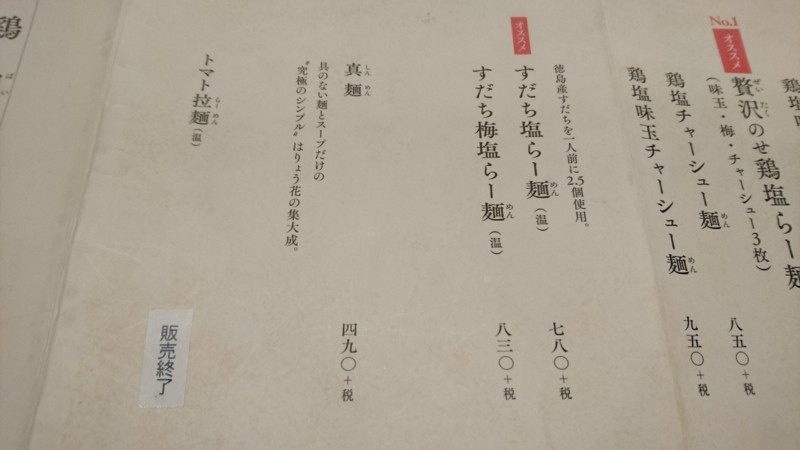 鶏塩
No.1
オススメ
贅沢のせ鶏塩らー麺
ぜいたく
(味玉・梅・チャーシュー3枚)
八五〇+税
鶏塩チャーシュー麺
めん
九五〇+税
鶏塩味玉チャーシュー麺
めん
徳島産すだちを一人前に2.5個使用。
オススメ
すだち塩らー麺(温)
めん
七八〇+税
すだち梅塩らー麺(温)
めん
八三〇+税
真麺
しんめん
四九〇+税
具のない麺とスープだけの
"究極のシンプル"はりょう花の集大成。
トマト拉麺(温)
らーめん
販売終了
鶏
ぱい